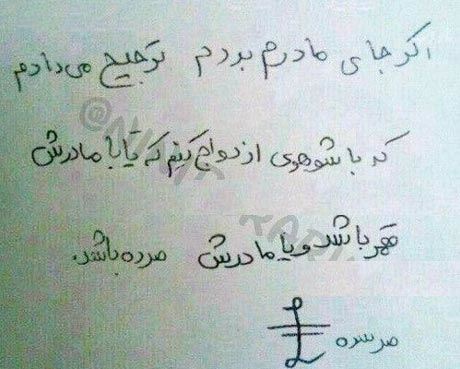 اگر جای مادرم بودم ترجیح می‌دادم
که با شوهری ازدواج کنم که یا با مادرش
قهر باشد و یا مادرش مرده باشد.
مرسده